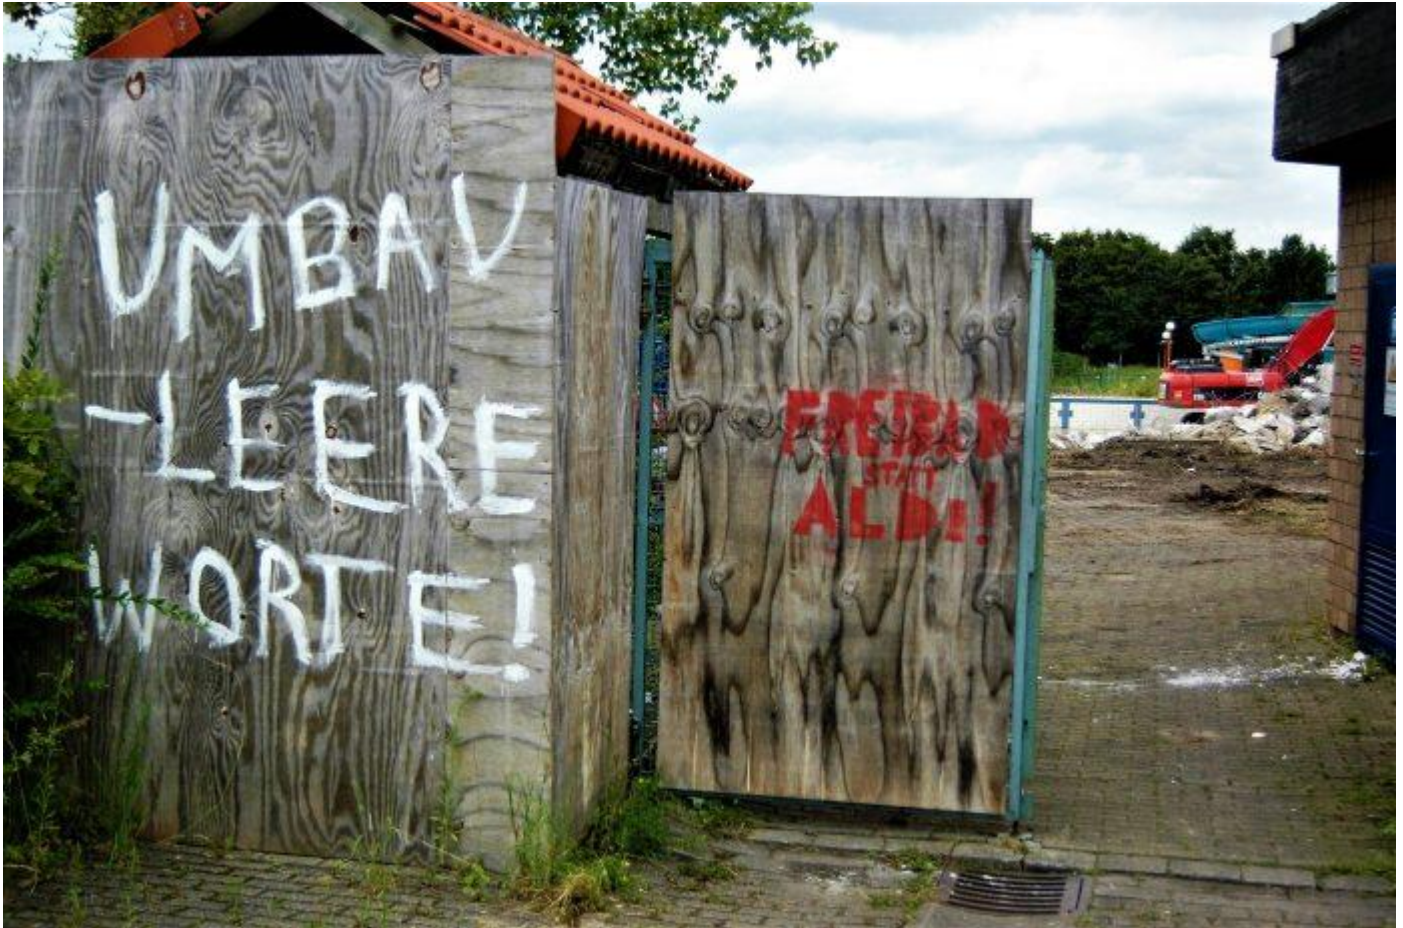 UMBAU
-LEERE
WORTE!
FREIBAD
STATT
ALDI!